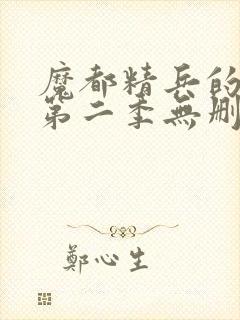 魔都精兵的
第二季無刪
鄭心生